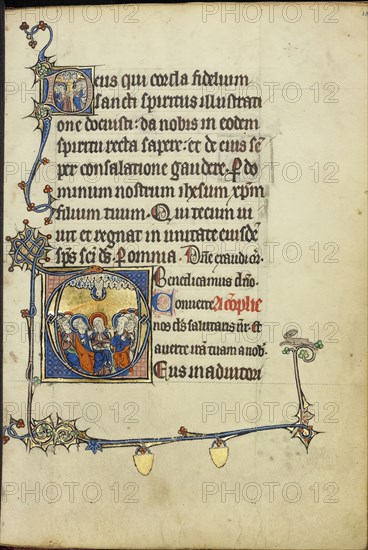 Deus qui corda fidelium
sancti spiritus illustrati
one docuisti: da nobis in eodem
spiritu recta sapere: et de eius sē
per consalatione gaudere. P do
minum nostrum ihesum xp̄m
filium tuum. Qui tecum ui
uit et regnat in unitate eiusdē
sp̄s sc̄i ds̄. P omnia. Dn̄e exaudi or̄.
Benedicamus dn̄o.
Conuerte A cōplie
nos ds̄ salutaris nr̄. et
auerte irā tuam a nob̄.
Deus in adiutori
PHOTO12